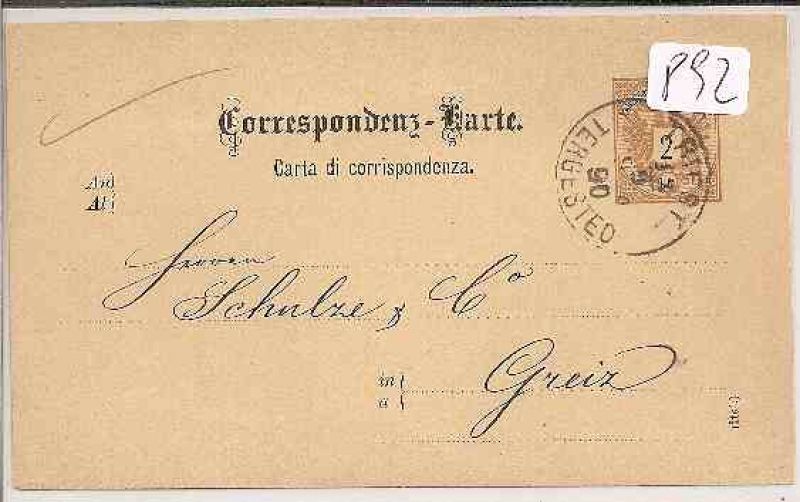 P92
Correspondenz-Karte.
Carta di corrispondenza.
2
TERGESTEO
90
An
Al
Herren
Schulze & Co
in
a
Greiz
(Ital.)